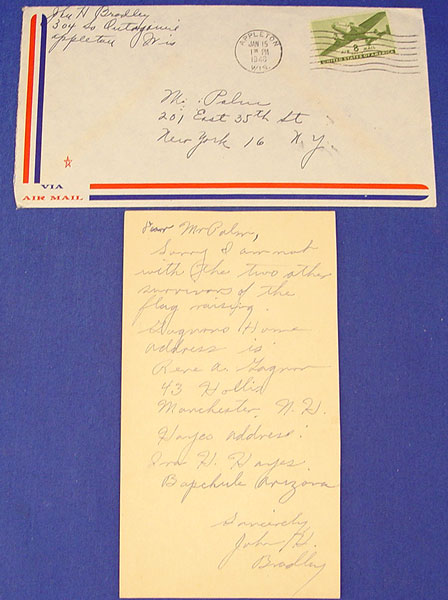 Jhn H Bradley
304 So Outagamie
Appleton Wis
APPLETON
JAN 15
PM
1946
WIS.
8
AIR MAIL
UNITED STATES OF AMERICA
Mr. Palm
201 East 35th St
New York 16 N.Y.
VIA
AIR MAIL
Dear Mr Palm,
Sorry I am not
with the two other
survivors of the
flag raising.
Gagnons Home
address is
Rene A. Gagnon
43 Hollis
Manchester, N.H.
Hayes address:
Ira H. Hayes.
Bapchule Arizona
Sincerely
John H.
Bradley